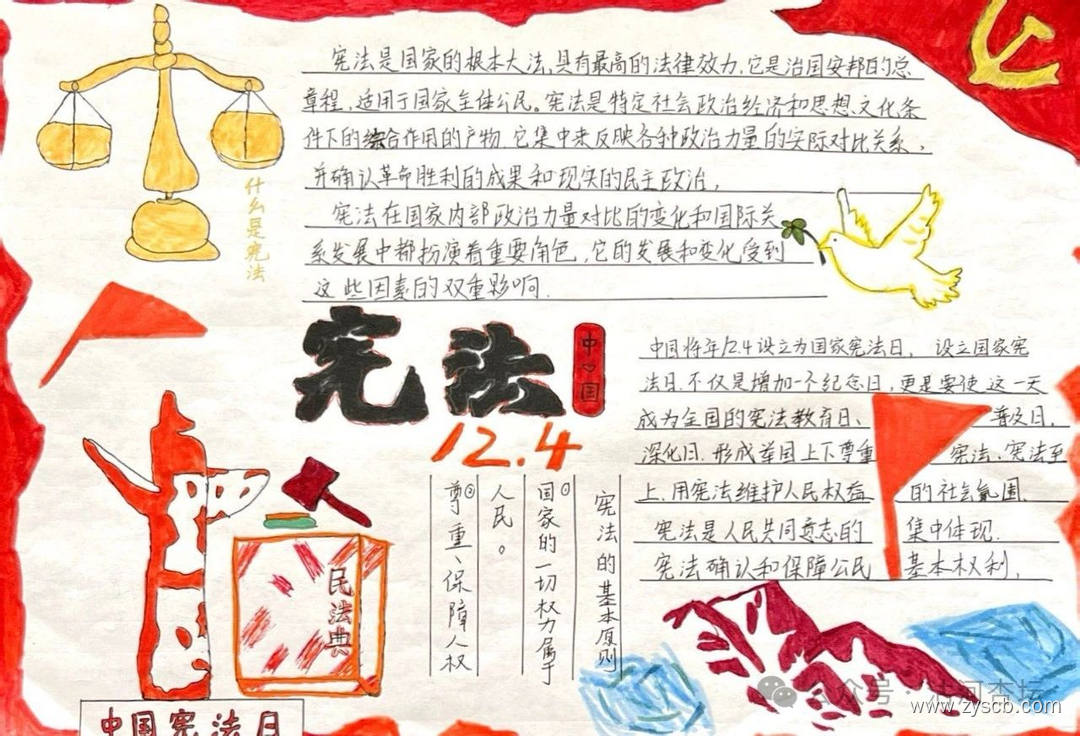 宪法是国家的根本大法,具有最高的法律效力,它是治国安邦的总
章程,适用于国家全体公民。宪法是特定社会政治经济和思想、文化条
件下的综合作用的产物,它集中来反映各种政治力量的实际对比关系,
并确认革命胜利的成果和现实的民主政治,
宪法在国家内部政治力量对比的变化和国际关
系发展中都扮演着重要角色,它的发展和变化受到
这些因素的双重影响.
什么是宪法
宪法
中国
12.4
中国将年12.4设立为国家宪法日, 设立国家宪
法日.不仅是增加一个纪念日,更是要使这一天
成为全国的宪法教育日、普及日,
深化日.形成举国上下尊重宪法、宪法至
上.用宪法维护人民权益的社会氛围.
宪法是人民共同意志的集中体现.
宪法确认和保障公民基本权利,
宪法的基本原则
①国家的一切权力属于
人民。
②尊重、保障人权
民法典
中国宪法日
公众号·油河杏坛
www.zyscb.com